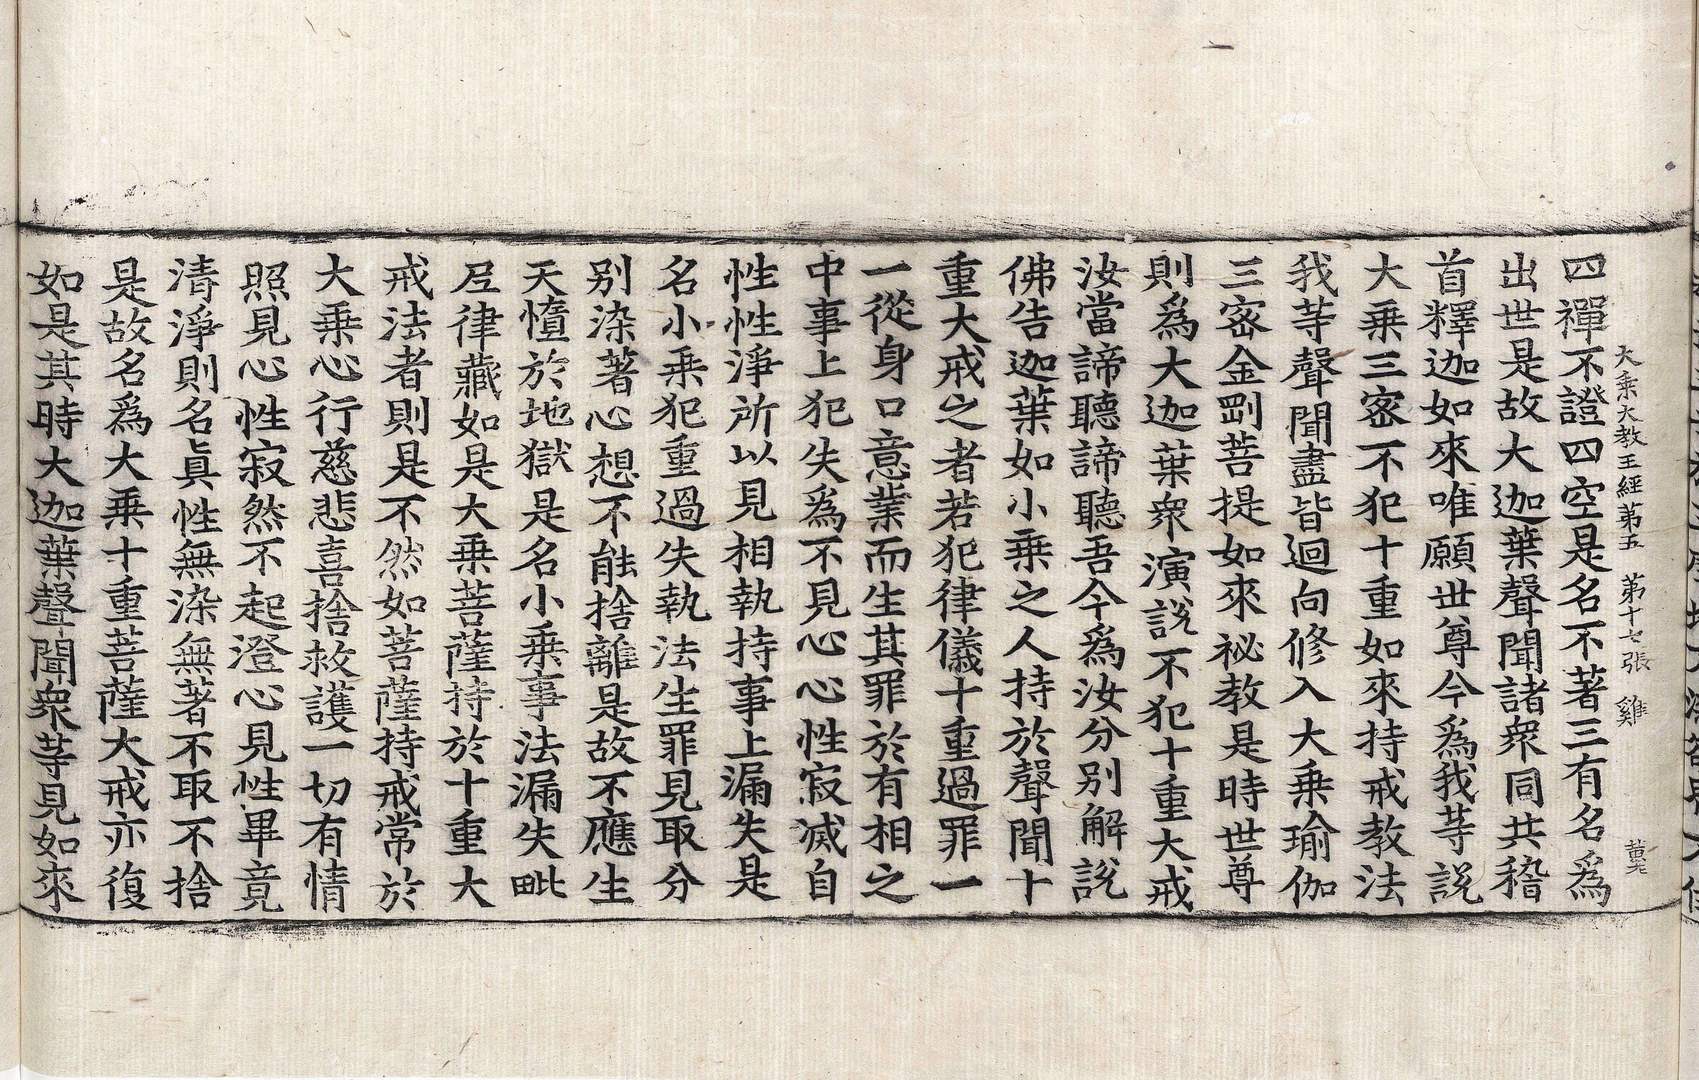 大乘大教王經第五　第十七張　雞
四禪不證四空是名不著三有名爲
出世是故大迦葉聲聞諸衆同共稽
首釋迦如來唯願世尊今爲我等說
大乘三密不犯十重如來持戒教法
我等聲聞盡皆迴向修入大乘瑜伽
三密金剛菩提如來祕教是時世尊
則爲大迦葉衆演說不犯十重大戒
汝當諦聽諦聽吾今爲汝分別解說
佛告迦葉如小乘之人持於聲聞十
重大戒之者若犯律儀十重過罪一
一從身口意業而生其罪於有相之
中事上犯失爲不見心心性寂滅自
性性淨所以見相執持事上漏失是
名小乘犯重過失執法生罪見取分
别染著心想不能捨離是故不應生
天憤於地獄是名小乘事法漏失毗
尼律藏如是大乘菩薩持於十重大
戒法者則是不然如菩薩持戒常於
大乘心行慈悲喜捨救護一切有情
照見心性寂然不起澄心見性畢竟
清淨則名眞性無染無著不取不捨
是故名爲大乘十重菩薩大戒亦復
如是其時大迦葉聲聞衆等見如來